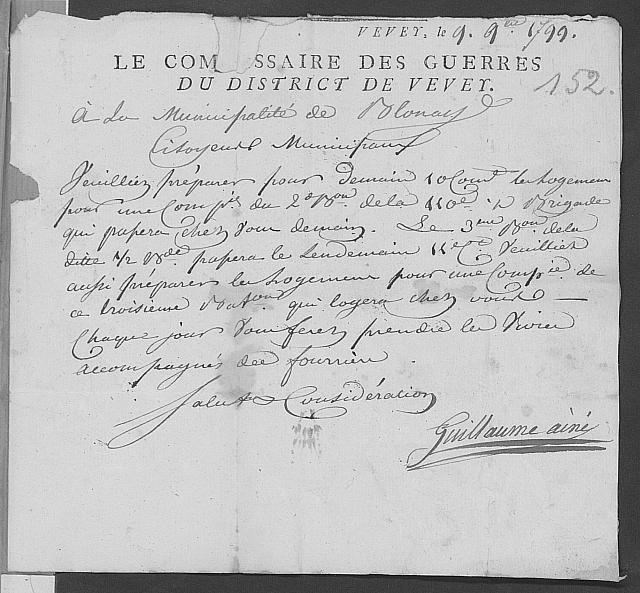 VEVEY, le 9. 9bre 1799.
LE COM SSAIRE DES GUERRES
DU DISTRICT DE VEVEY.
152.
À La Municipalité de Blonay
Citoyens Municipaux
Veuilliez préparer pour demain 10 Cour.t le Logement
pour une Comp.ie du 2.e B.on de la 110.e 1/2 Brigade
qui passera chez Vous demain. Le 3.me B.on de la
ditte 1/2 B.de passera le Lendemain 11.e C.t Veuilliez
aussi préparer le Logement pour une Comp.ie de
ce troisieme Bat.on qui logera chez vous —
Chaque jour Vous ferez prendre les Vivres
accompagnés des fourriers.
Salut & Considération
Guillaume ainé